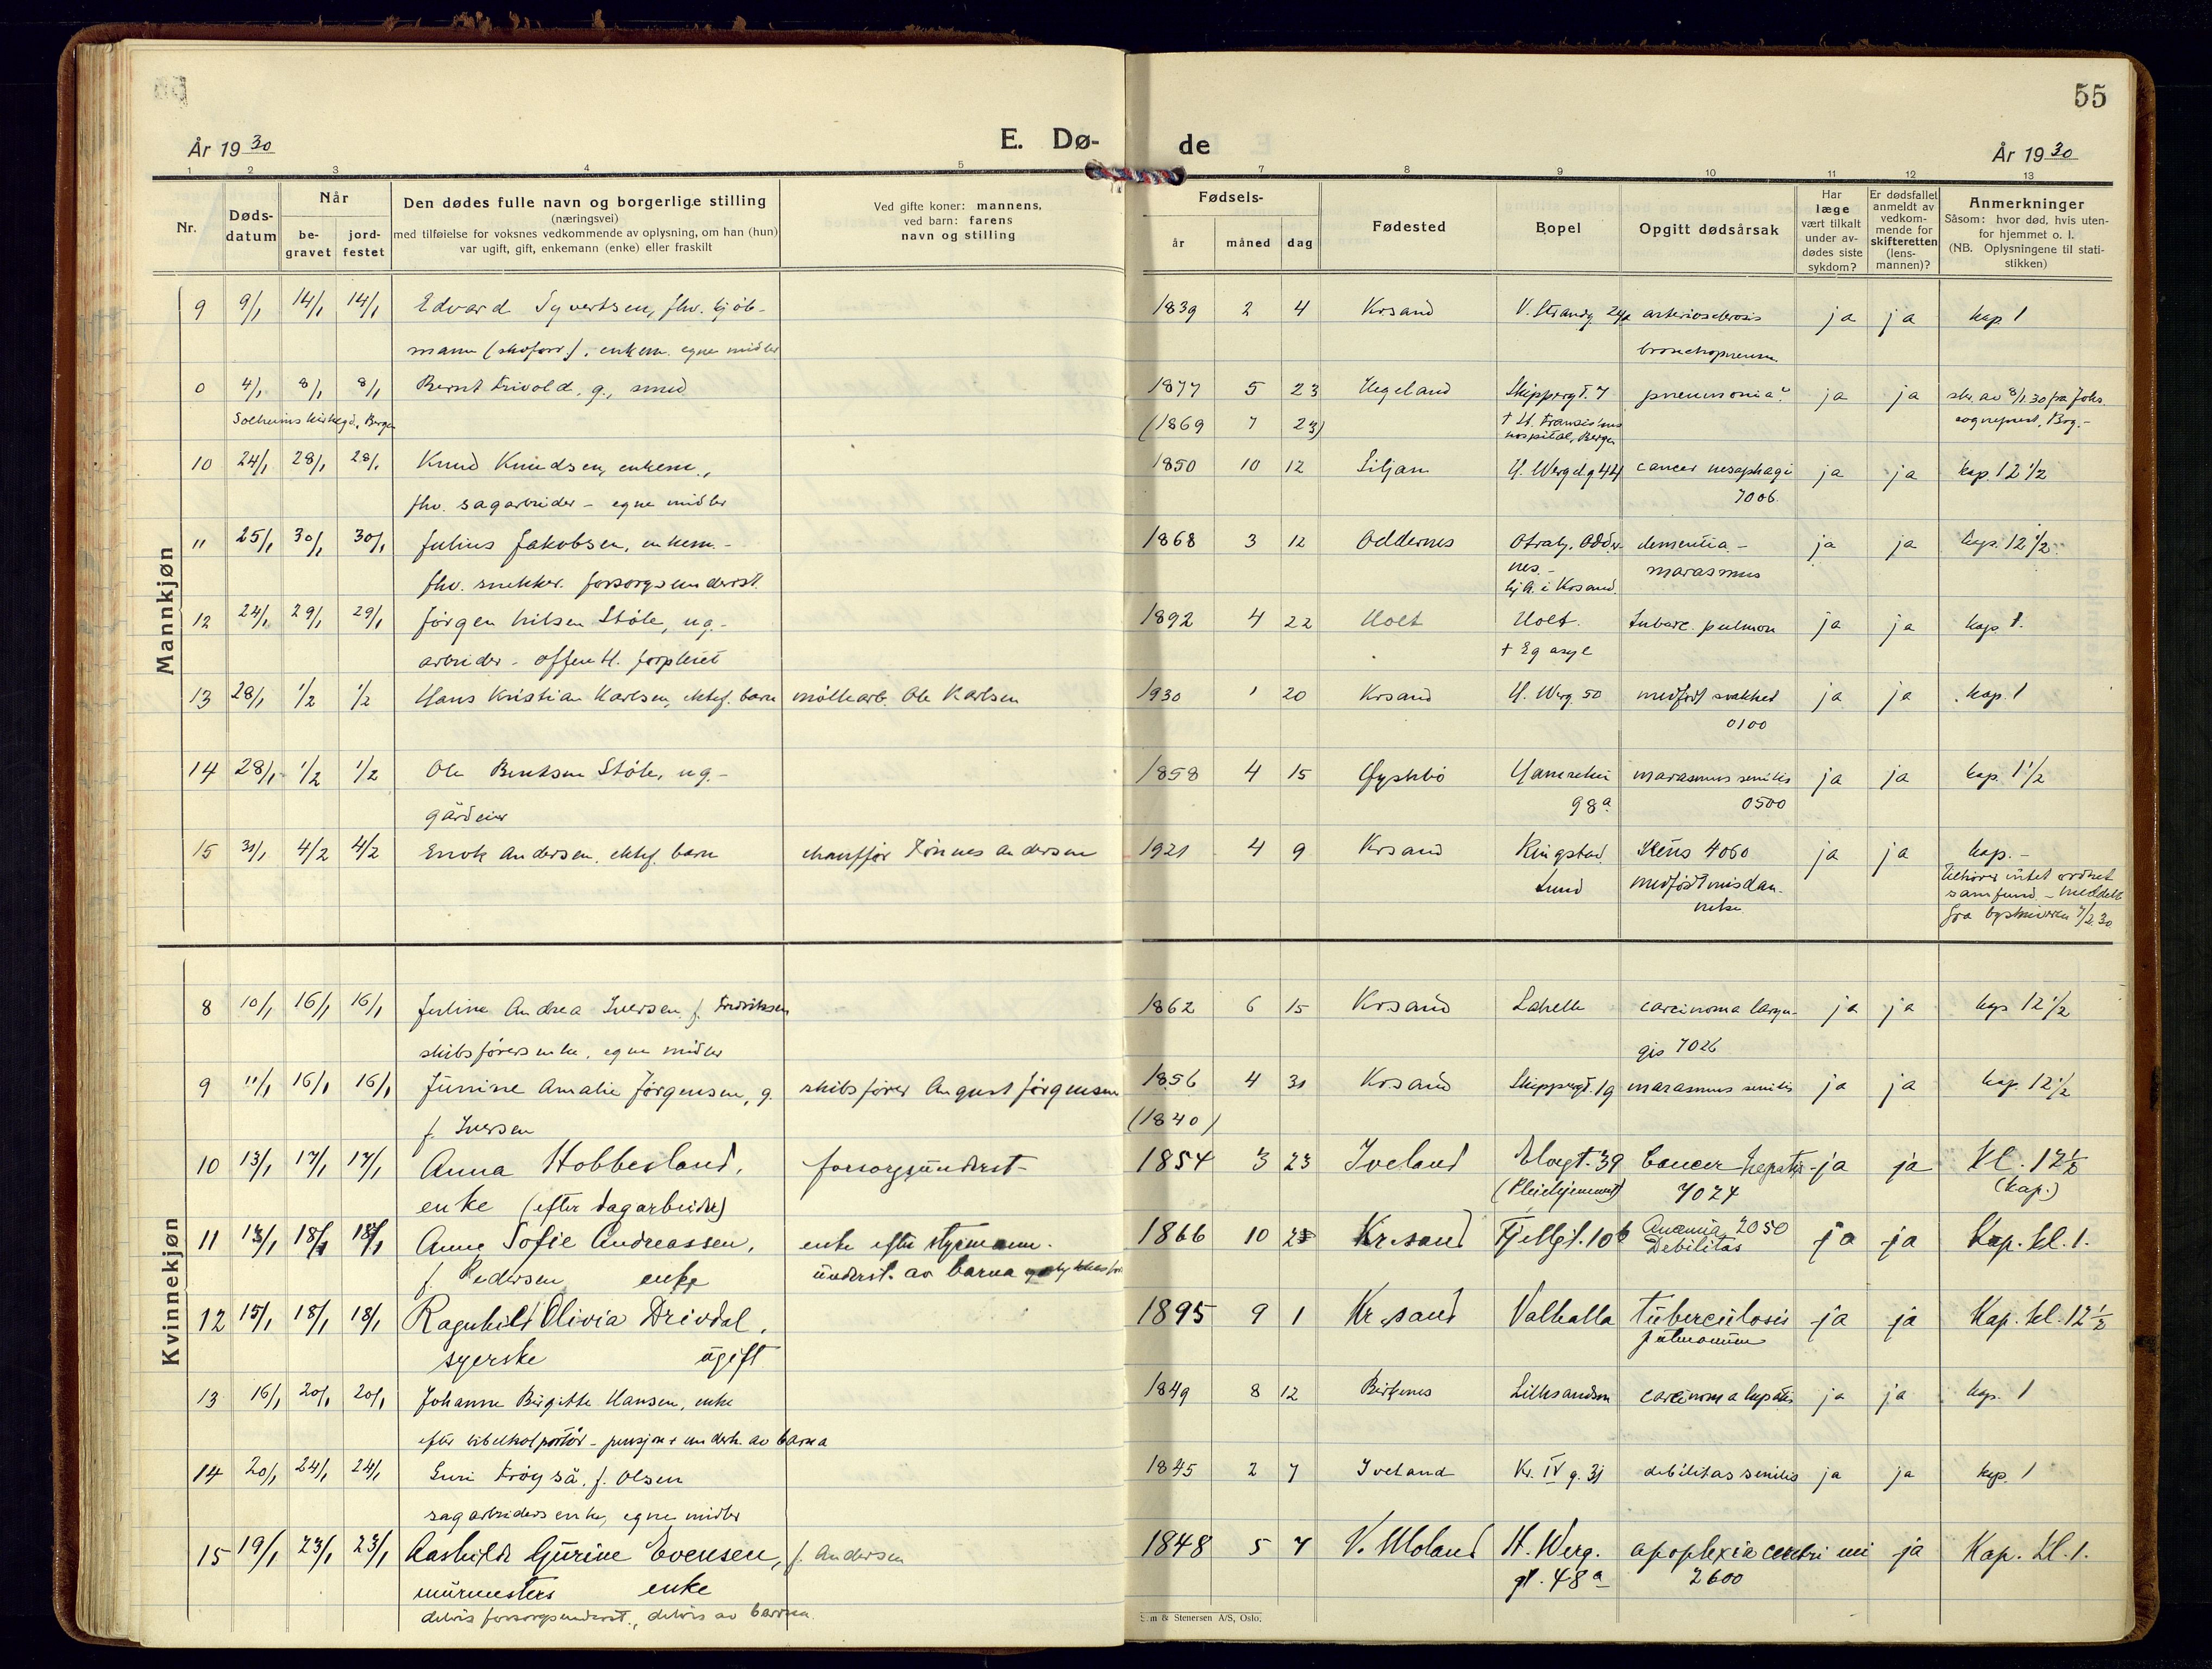 55
År 1930 E. Dø- de År 1930
1 2 3 4 5 7 8 9 10 11 12 13
Nr.
Døds-
datum
Når
be-
gravet
jord-
festet
Den dødes fulle navn og borgerlige stilling
(næringsvei)
med tilføielse for voksnes vedkommende av oplysning, om han (hun)
var ugift, gift, enkemann (enke) eller fraskilt
Ved gifte koner: mannens,
ved barn: farens
navn og stilling
Fødsels-
år måned dag
Fødested
Bopel
Opgitt dødsårsak
Har
læge
vært tilkalt
under av-
dødes siste
sykdom?
Er dødsfallet
anmeldt av
vedkom-
mende for
skifteretten
(lens-
mannen)?
Anmerkninger
Såsom: hvor død, hvis uten-
for hjemmet o. l.
(NB. Oplysningene til stati-
stikken)
Mannkjøn
9 9/1 14/1 14/1 Edvard Syvertsen, fhv. kjøb- 1839 2 4 Krsand V. Strandg. arteriosclerosis ja ja kap 1
mann (skoforr.), enkem. egne midler bronchopneum.
0 4/1 8/1 8/1 Bernt Trivold, g., smed 1877 5 23 Hegeland Skippergt. 7 pneumonia? ja ja skr. av 8/1.30 fra Johs.
Solheims kirkegd., Bergen (1869 7 23) † St. Fransiskus sogneprest, Brg.-
hospital, Bergen
10 24/1 28/1 28/1 Knud Knudsen, enkem., 1850 10 12 Siljan H. Wergel.g 44 cancer oesophagi ja ja kap. 12 1/2
fhv. sagarbeider - egne midler 7006
11 25/1 30/1 30/1 Julius Jakobsen, enkem.- 1868 3 12 Oddernes Otrahj. Odder- dementia - ja ja kap. 12 1/2
fhv. snekker. forsorgsunderst. nes.- marasmus
hjh. i Krsand.
12 24/1 29/1 29/1 Jørgen Nilsen Støle, ug.- 1892 4 22 Holt Holt. Tuberc. pulmon ja ja kap. 1.
arbeider - offentl. forpleiet + Eg asyl
13 28/1 1/2 1/2 Hans Kristian Karlsen, ektef. barn møllearb. Ole Karlsen 1930 1 20 Krsand H. Werg. 50 medfødt svakhet ja ja kap. 1
0100
14 28/1 1/2 1/2 Ole Bentsen Støle, ug.- 1858 4 15 98a marasmus senilis ja ja kap. 1 1/2
gårdeier 0500
15 31/1 4/2 4/2 Enok Andersen, ektef. barn chauffør Tønnes Andersen 1921 4 9 Krsand Ringstad, 4060 ja ja kap. -
Lund medfødt misdan- tilhører intet ordnet
nelse samfund - meddelt
fra byskriveren 7/2.30
Kvinnekjøn
8 10/1 16/1 16/1 Juline Andrea Iversen f. Fredriksen 1862 6 15 Krsand Lahelle carcinoma laryn- ja ja kap 12 1/2
skibsførers enke, egne midler gis 7026
9 11/1 16/1 16/1 Junine Amalie Jørgensen, g. skibsfører August Jørgensen 1856 4 30 Krsand Skippergt. 19 marasmus senilis ja ja kap. 12 1/2
f. Iversen (1840)
10 13/1 17/1 17/1 Anna Hobbesland, forsorgsunderst- 1854 3 23 Iveland Elvegt. 39 Cancer hepatis ja ja Kl. 12 1/2
enke (efter dagarbeider) (Pleiehjemmet) 7024 (kap.)
11 13/1 18/1 18/1 Anne Sofie Andreassen, enke efter styrmann. 1866 10 Kr.sand Fjellgt. 10b Anæmia 2050 ja ja Kap. kl. 1.
f. Pedersen enke underst. av barna Debilitas
12 15/1 18/1 18/1 Ragnhild Olivia Drivdal, 1895 9 1 Kr.sand Valhalla tuberculosis ja ja Kap. kl. 12 1/2
syerske ugift pulmonum
13 16/1 20/1 20/1 Johanne Birgitte Hansen, enke 1849 8 12 Birkenes Lillesandsvn carcinoma hepatis ja ja kap. 1
efter bibelkolportør - pensjon + underh. av barna
14 20/1 24/1 24/1 Guri Frøyså, f. Olsen 1845 2 7 Iveland Kr. IV g. 31 debilitas senilis ja ja kap. 1
sagarbeiders enke, egne midler
15 19/1 23/1 23/1 Aashilde Gurine Evensen, f. Andersen 1848 5 7 V. Moland H. Werg. apoplexia cerebri nei ja Kap. kl. 1.
murmesters enke gt. 48a 2600
delvis forsorgsunderst., delvis av barna.
Sem & Stenersen A/S, Oslo.